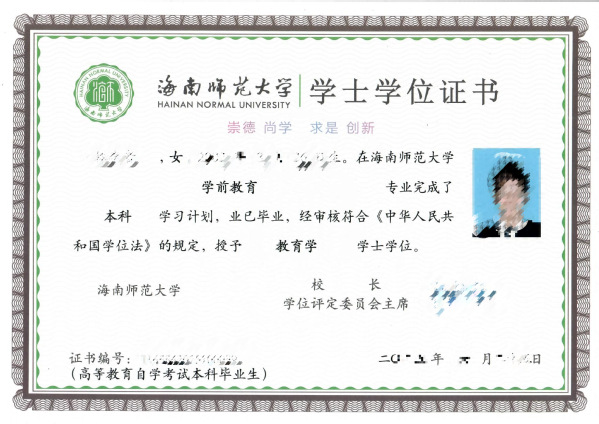 HAINAN NORMAL UNIVERSITY
海南师范大学
海南师范大学 学士学位证书
HAINAN NORMAL UNIVERSITY
崇德 尚学 求是 创新
,女 生。在海南师范大学
学前教育 专业完成了
本科 学习计划,业已毕业,经审核符合《中华人民共
和国学位法》的规定,授予 教育学 学士学位。
海南师范大学
校 长
学位评定委员会主席
证书编号:
二〇 五年 月 日
(高等教育自学考试本科毕业生)